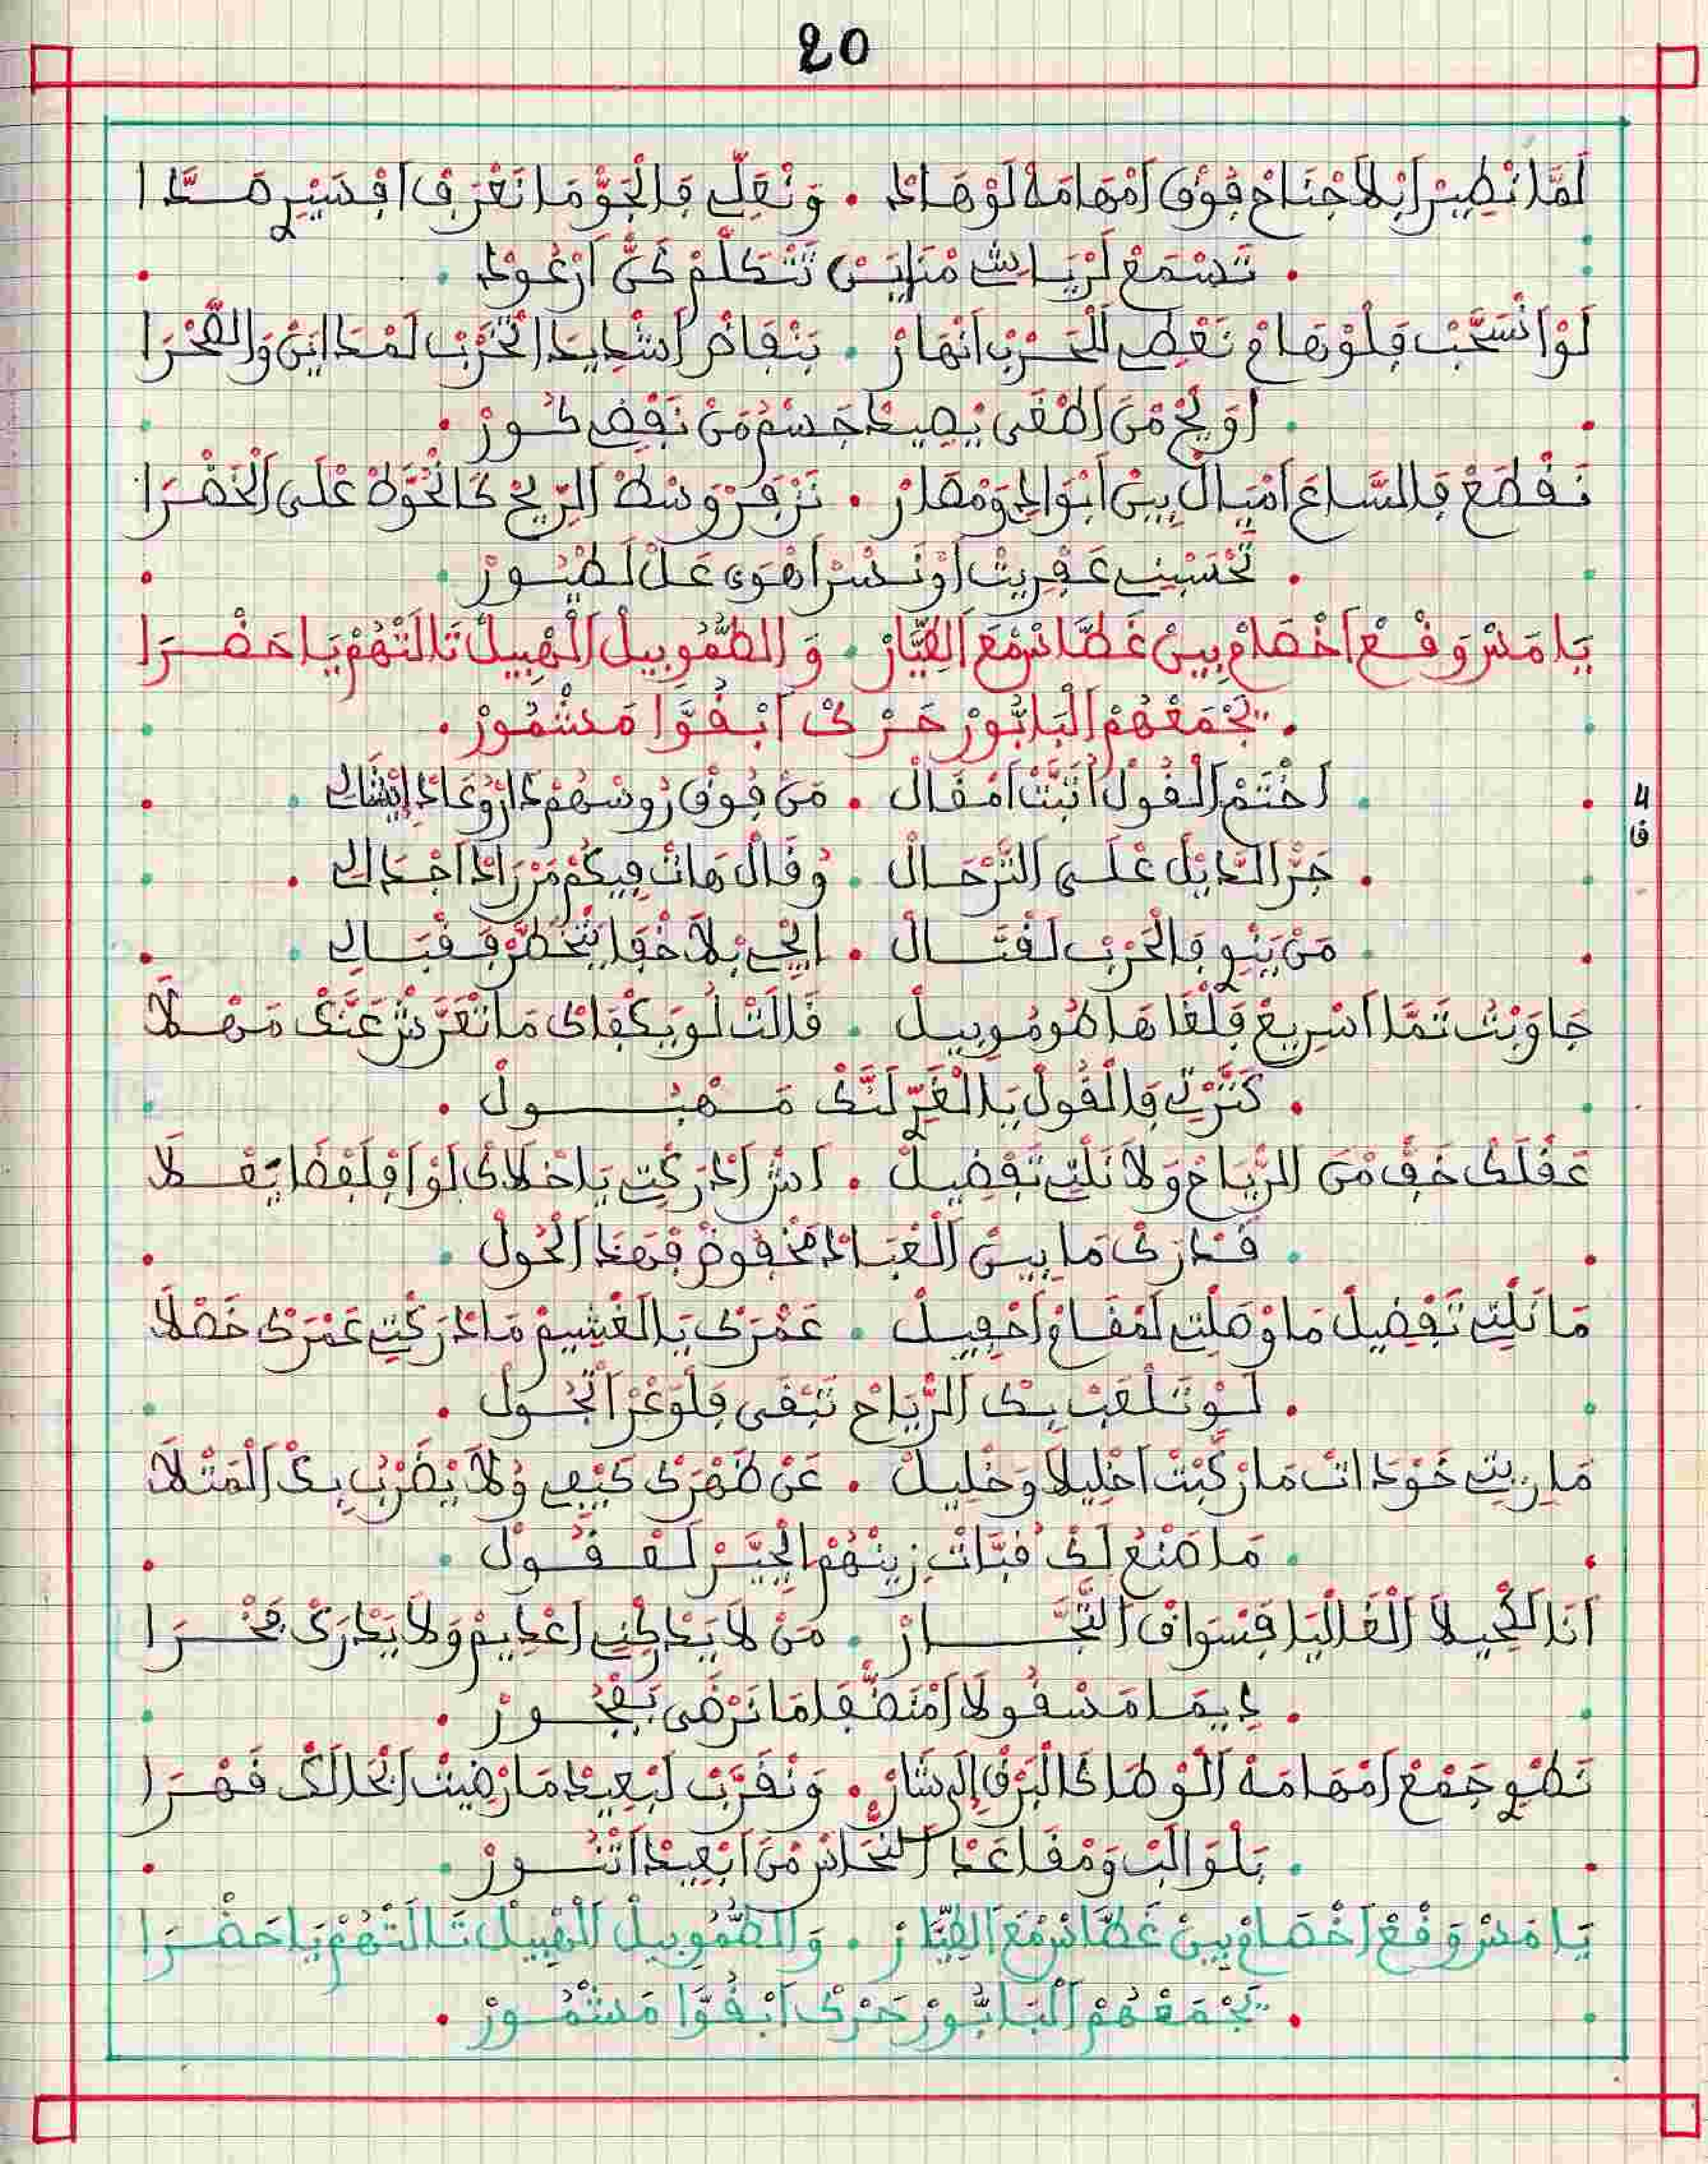 20
لَمَّا نْطِيرْ ابْلاَجْنَاحْ فُوقْ اَمْهَامَهْ لَوْهَادْ . وَنْقِلِّي فَالْجَوّْ مَا نَعْرَفْ افْسَيْرِي صَدَّا
. تَسْمَعْ لَرْيَاشْ مْنَايَنْ تَتْكَلَّمْ كَنّْ ارْعُودْ .
لَوْ انْسَحَّبْ فَلَوْهَامْ نَعْطِي لَلْحَرْبْ انْهَارْ . بَنْفَاضْ اشْدِيدَ اتْخَرَّبْ لَمْدَايَنْ وَالصَّحْرَا
. اَوِيحْ مْنَ اصْغَى يْصِيدْ جَسْمُ مَنْ نَفْضِي كُورْ .
نَقْطَعْ فَالسَّاعَ امْيَالْ بِينْ ابْوَادِي وَمْصَارْ . نَزْفَرْ وَسْطْ الرِّيحْ كَالْخُوَّطْ عْلَى الْخَضْرَا
. تَحْسَبْنِي عَفْرِيتْ اوْ نَسْرْ اهْوَى عَلْ لَطْيُورْ .
يَا مَسْ وَقْعْ اخْصَامْ بِينْ غَطَّاسْ مْعَ الطِّيَّارْ . وَالطُّمُوبِيلْ الْهْبِيلْ تَالَتْهُمْ يَا حَضْرَا
. يَجْمَعْهُمْ الْبَابُّورْ حَرْكْ ابْقُوَّا مَشْمُورْ .
4
ق
. اخْتَمْ الْقُولْ اَتْبَتْ امْقَالْ . مَنْ فُوقْ رُوسْهُمْ دَارْ وُعَادْ ايْشَالِي .
. جَرّْ الدِّيلْ عْلَى التَّرْحَالْ . وُقَالْ هَاتْ فِيكُمْ مَنْ رَادْ اجْدَالِي .
. مَنْ يَنْوِي فَالْحَرْبْ لَقْتَالْ . ايْجِي بْلاَ خْفَا يَتْخَطَّرْ فَقْبَالِي .
جَاوْبَتْ تَمَّا اسْرِيعْ فَلْغَاهَا طُومُوبِيلْ . قَالَتْ لُو يَكْفَاكْ مَا تْعَرَّشْ عَنَّكْ مَهْلاَ
. كَتَّرْتِي فَالْقُولْ يَا الْغَرِّي لَنَّكْ مَهْبُولْ .
عَقْلَكْ خَفّْ مْنَ الرّْيَاحْ وَلاَ نَلْتِي تَفْضِيلْ . اشْ ادْرَكْتِي يَا خْلاَكْ لَوْ افْلَفْضَا يَقْلاَ
. قَدْرَكْ مَا بِينْ الْعْبَادْ مَخْفُوضْ فَهَدَ الْحُولْ .
مَا نَلْتِي تَفْضِيلْ مَا وْصَلْتِي لَمْقَامْ احْفِيلْ . عَمْرَكْ يَا الْغْشِيمْ مَا دْرَكْتِي عَمْرَكْ خَصْلاَ
. لَوْ تَلْعَبْ بِكْ الرّْيَاحْ تَبْقَى فَلَوْعَرْ اتْجُولْ .
مَا رِيتِي خَوْدَاتْ مَا رْكَبْتْ اخْلِيلاَ وَخْلِيلْ . عَنْ ظَهْرَكْ كَيْفِي وُلاَ يْضَرْبُ بِكْ الْمَتْلاَ
. مَا صَنْعُ لَكْ قُبَّاتْ زِينْهُمْ ايْحَيَّرْ لَعْقُولْ .
اَنَا لَكْحِيلاَ الْغَالْيَا فَسْوَاقْ التُّجَّارْ . مَنْ لاَ يَدْرَكْنِي اعْدِيمْ وَلاَ يَدْرَكْ فَخْرَا
. دِيمَا مَسْقُولاَ امْنَضّْفَا مَا نَرْضَى بَفْجُورْ .
نَطْوِي جَمْعْ امْهَامَهْ الْوْطَا كَالْبَرْقْ الِى شَارْ . وَنْقَرَّبْ لَبْعِيدْ مَا رْضِيتْ انْجَالَكْ قَهْرَا
. بَلْوَالَبْ وَمْقَاعَدْ النّْحَاسْ مْنَ ابْعِيدْ اتْنُورْ .
يَا مَسْ وَقْعْ اخْصَامْ بِينْ غَطَّاسْ مْعَ الطِّيَّارْ . وَالطُّمُوبِيلْ الْهْبِيلْ تَالَتْهُمْ يَا حَضْرَا
. يَجْمَعْهُمْ الْبَابُّورْ حَرْكْ ابْقُوَّا مَشْمُورْ .